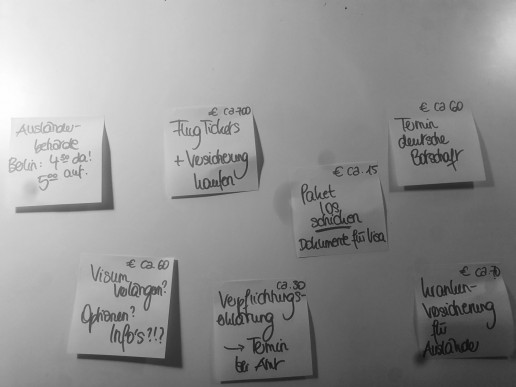 Ausländer-
behörde
Berlin: 4⁰⁰ da!
5⁰⁰ auf.
€ ca 700
Flug Tickets
+ Versicherung
kaufen
€ ca. 60
Termin
deutsche
Botschaft
€ ca. 15
Paket
los
schicken
Dokumente für Visa
€ ca. 60
Visum
verlängern?
Optionen?
Info's?!?
ca. 30
Verpflichtungs-
erklärung
→ Termin
bei Amt
€ ca. 70
Kranken-
versicherung
für
Ausländer